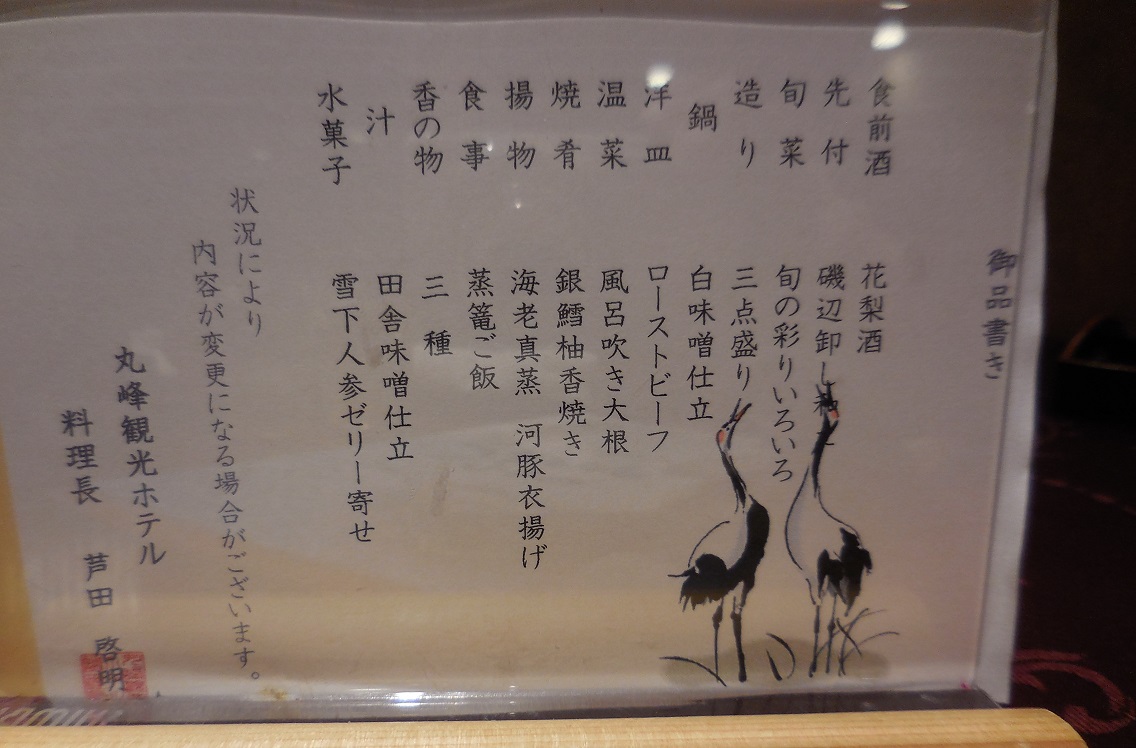 御品書き
食前酒 花梨酒
先付 磯辺卸し
旬菜 旬の彩りいろいろ
造り 三点盛り
鍋 白味噌仕立
洋皿 ローストビーフ
温菜 風呂吹き大根
焼肴 銀鱈柚香焼き
揚物 海老真蒸 河豚衣揚げ
食事 蒸篭ご飯
香の物 三種
汁 田舎味噌仕立
水菓子 雪下人参ゼリー寄せ
状況により
内容が変更になる場合がございます。
丸峰観光ホテル
料理長 芦田 啓明